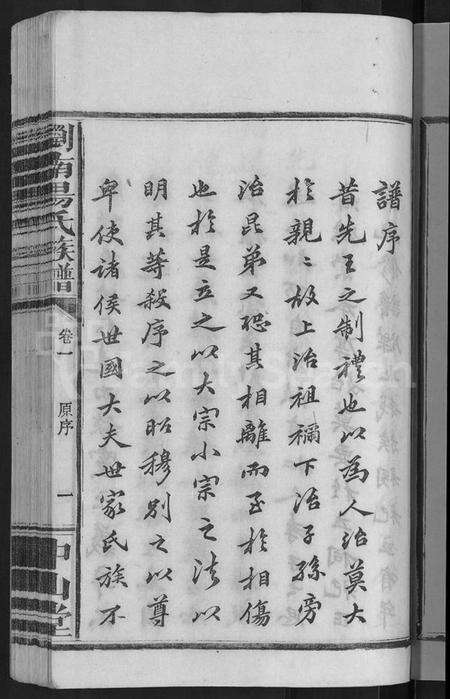 譜序
昔先王之制禮也以為人治莫大
於親〻故上治祖禰下治子孫旁
治昆弟又恐其相離而至於相傷
也於是立之以大宗小宗之法以
明其等殺序之以昭穆別之以尊
卑使諸侯世國大夫世家氏族不
瀏南易氏族譜
卷一
原序
一